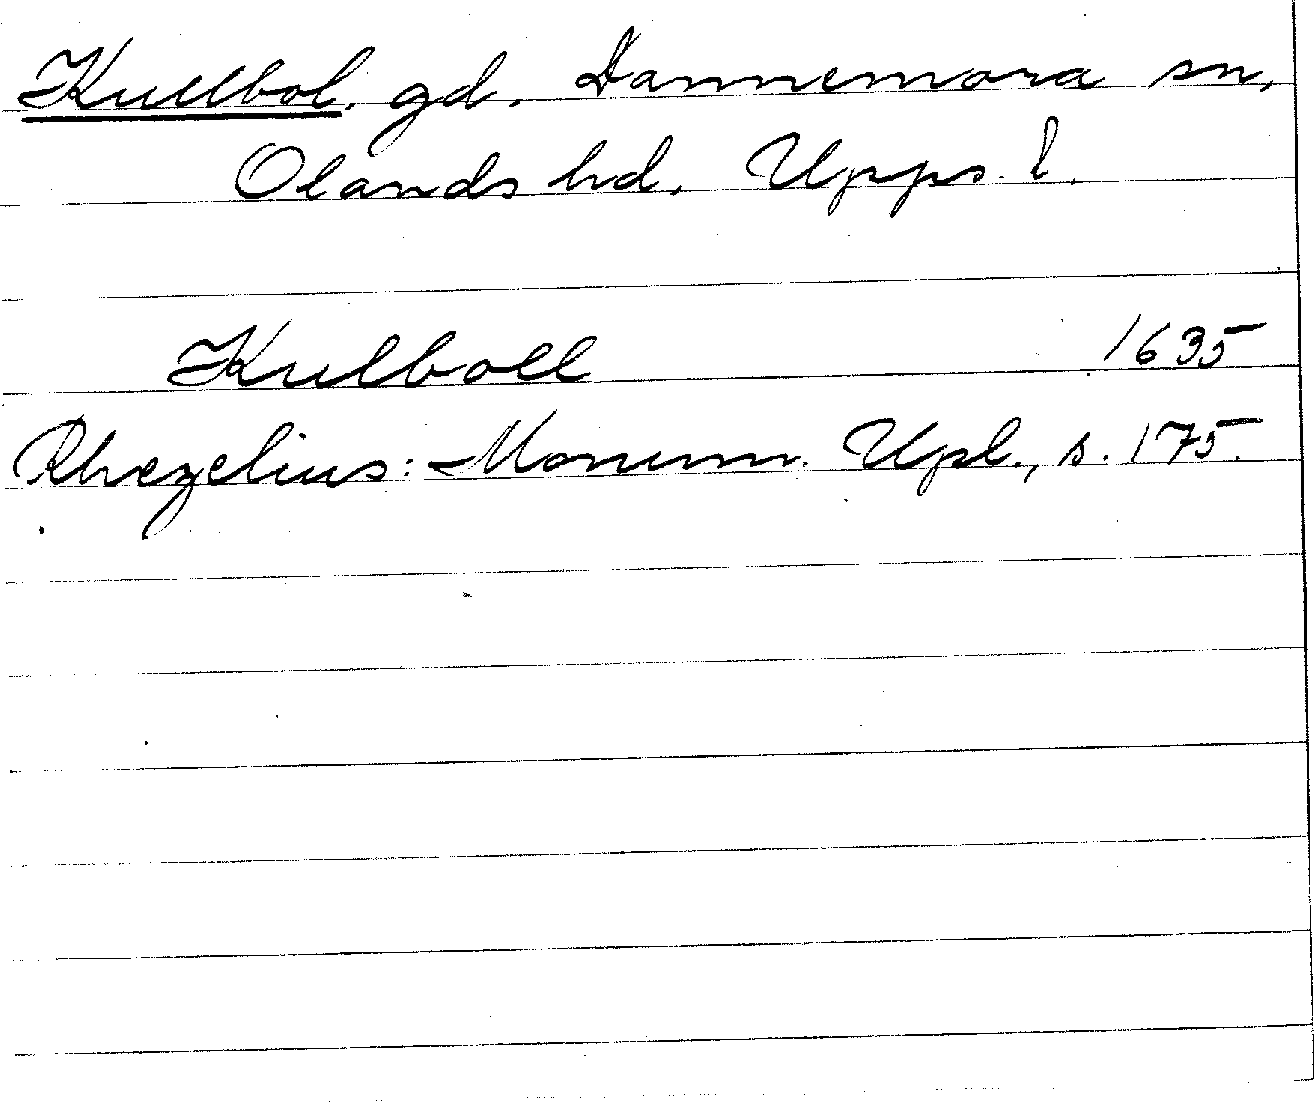 Kullbol. gd. Dannemora sn,
Olands hd. Upps. l.
Kulboll 1635
Rhezelius: Monum. Upl., s. 175.